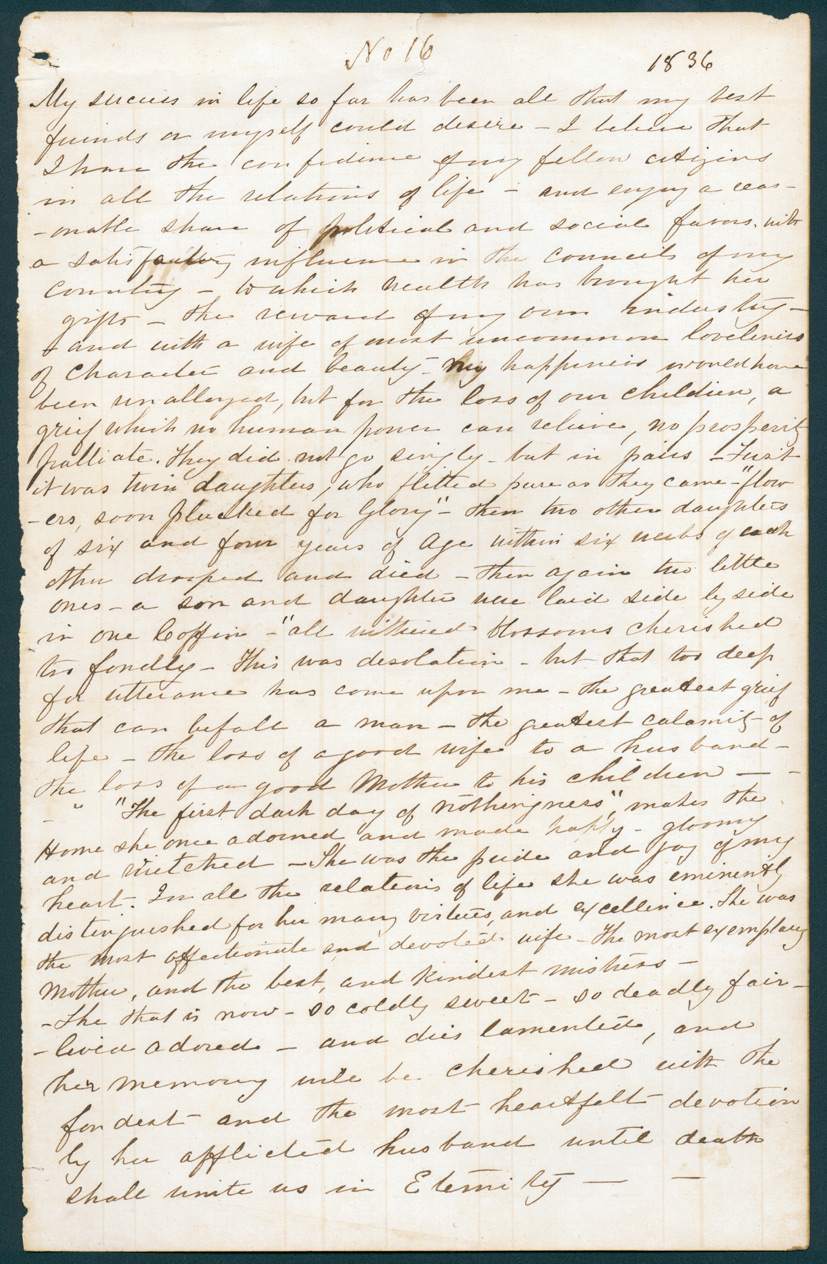 No 16 1836
My success in life so far has been all that my best
friends or myself could desire - I believe that
I have the confidence of my fellow citizens
in all the relations of life - and enjoy a reas-
-onable share of political and social favors. with
a satisfactory influence in the councils of my
country - to which wealth has brought her
gifts - the reward of my own industry -
- and with a wife of most uncommon loveliness
of character and beauty - my happiness would have
been unalloyed, but for the loss of our children, a
grief which no human power can relieve, no prosperity
palliate. They did not go singly - but in pairs - First
it was twin daughters, who flitted pure as they came - "flow
-ers, soon plucked for Glory" - then two other daughters
of six and four years of age within six weeks of each
other drooped and died - then again two little
ones - a son and daughter were laid side by side
in one Coffin - "all withered blossoms cherished
too fondly - This was desolation - but that too deep
for utterance has come upon me - the greatest grief
that can befall a man - the greatest calamity of
life - the loss of a good wife to a husband -
the loss of a good Mother to his children -
- " "The first dark day of nothingness", makes the
Home she once adorned and made happy - gloomy
and wretched - She was the pride and joy of my
heart. In all the relations of life she was eminently
distinguished for her many virtues, and excellence. She was
the most affectionate and devoted wife - The most exemplary
Mother, and the best, and kindest mistress -
- She that is now - so coldly sweet - so deadly fair -
- lived adored - and dies lamented, and
her memory will be cherished with the
fondest and the most heartfelt devotion
by her afflicted husband until death
shall unite us in Eternity - -